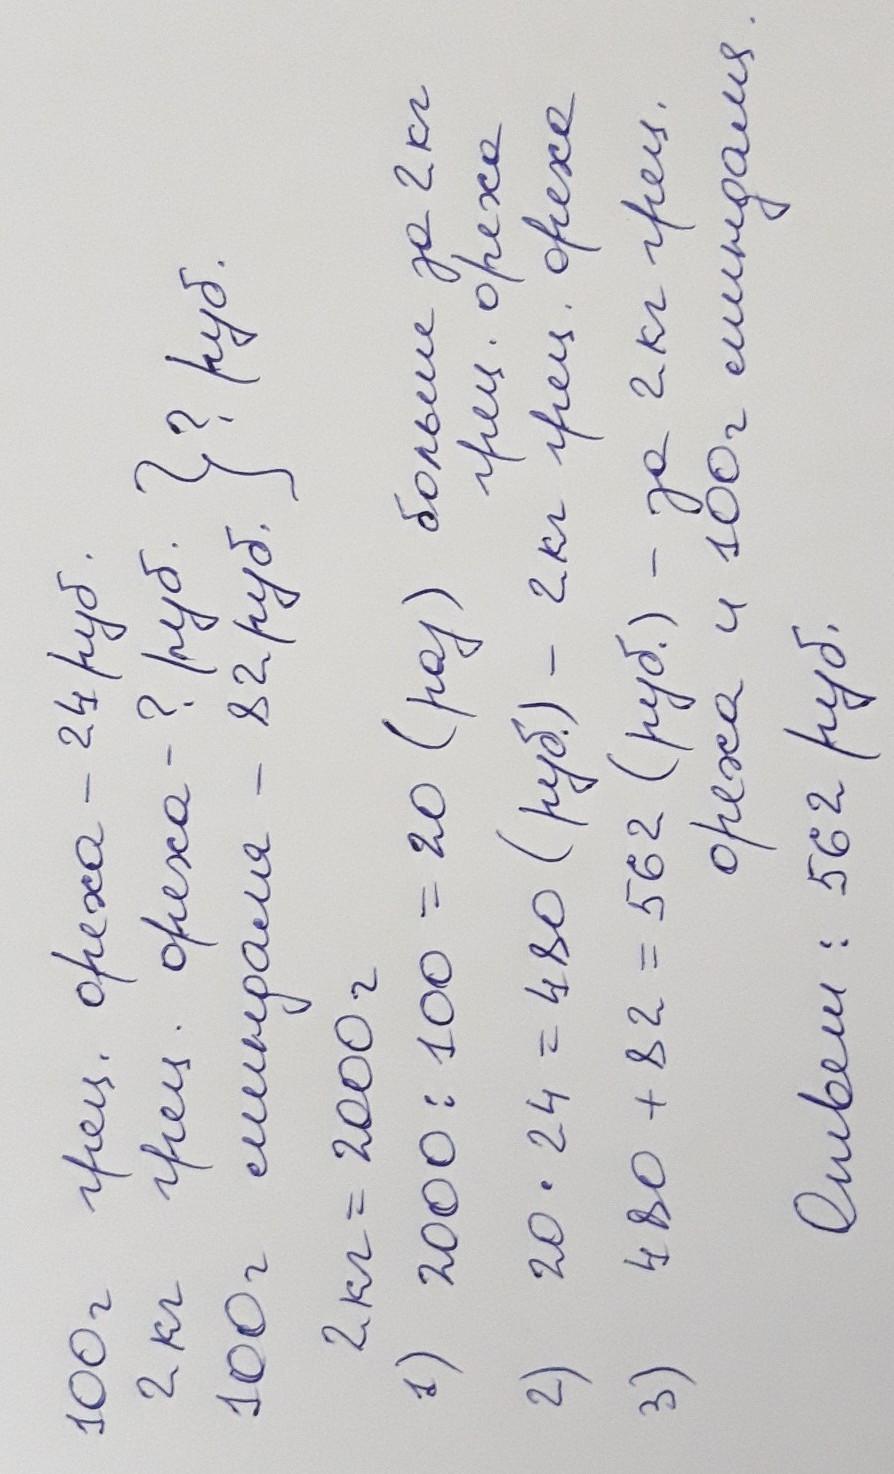 100г грец. ореха – 24 руб.
2 кг грец. ореха - ? руб. } ? руб.
100г миндаля – 82 руб.
2кг = 2000г
1) 2000 : 100 = 20 (раз) больше за 2кг
грец. ореха
2) 20 · 24 = 480 (руб.) – 2кг грец. ореха
3) 480 + 82 = 562 (руб.) – за 2кг грец.
ореха и 100г миндаля.
Ответ : 562 руб.